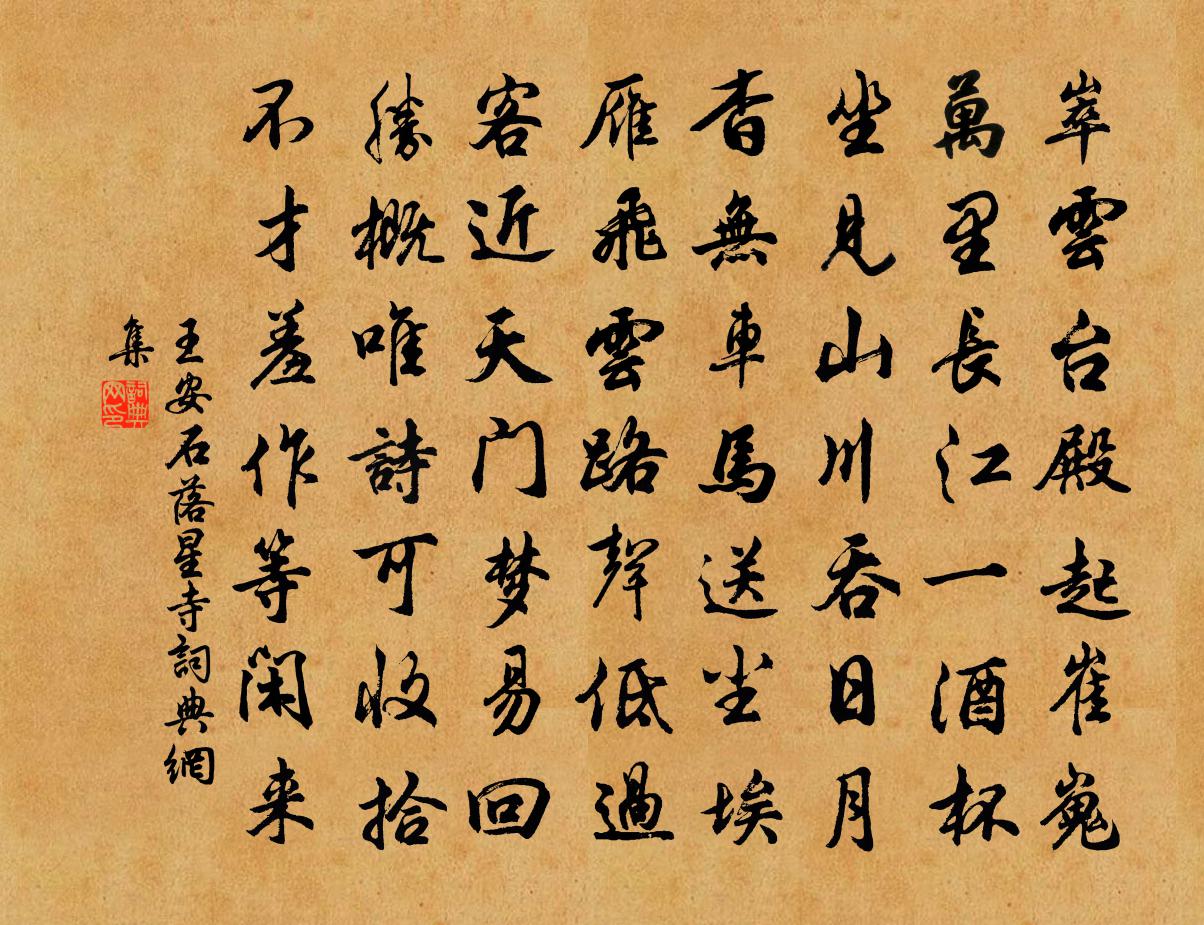 崒雲台殿起崔嵬
萬里長江一酒杯
坐見山川吞日月
杳無車馬送尘埃
雁飛雲路聲低過
客近天门梦易回
勝概唯詩可收拾
不才羞作等閑来
王安石落星寺詞典網
集
詞典网印